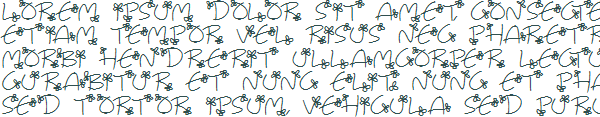 LOREM IPSUM DOLOR SIT AMET, CONSECTE
ETIAM TEMPOR VEL RISUS NEC PHARETR
MORBI HENDRERIT ULLAMCORPER LECTU
CURABITUR ET NUNC ELIT. NUNC ET PHA
SED TORTOR IPSUM, VEHICULA SED PURU